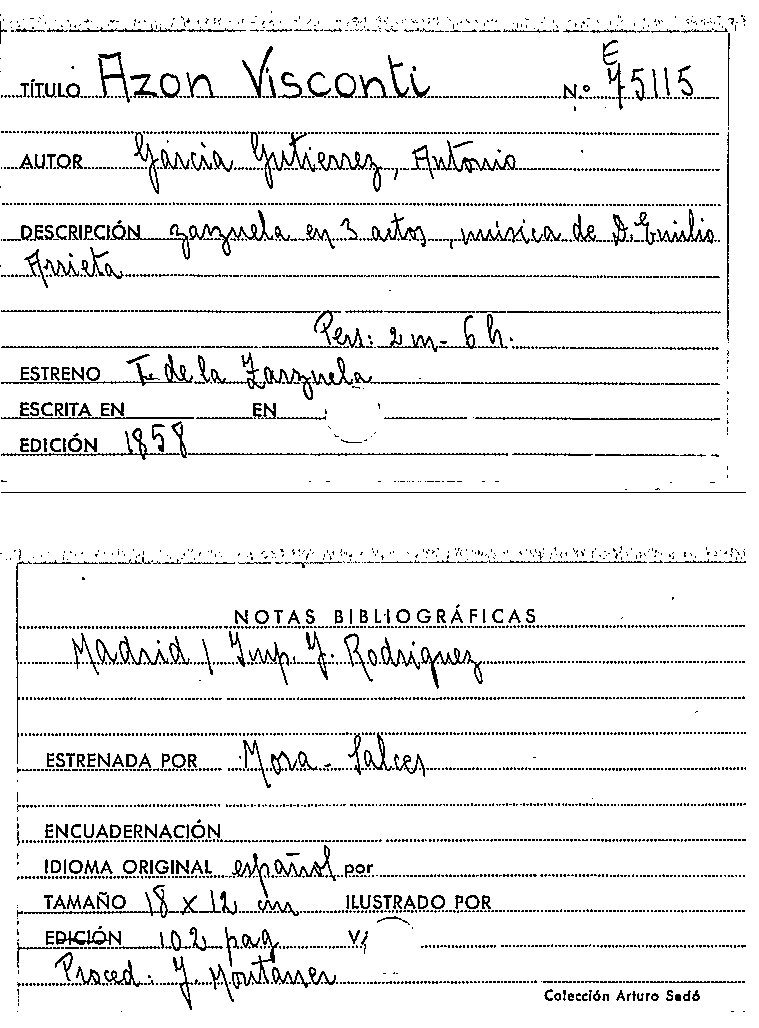 TÍTULO Azon Visconti N.º E 75115
AUTOR García Gutierrez, Antonio
DESCRIPCIÓN zarzuela en 3 actos, música de D. Emilio
Arrieta
Pers: 2 m - 6 h.
ESTRENO T. de la Zarzuela
ESCRITA EN EN
EDICIÓN 1858
NOTAS BIBLIOGRÁFICAS
Madrid / Imp. J. Rodriguez
ESTRENADA POR Mora - Salces
ENCUADERNACIÓN
IDIOMA ORIGINAL español por
TAMAÑO 18 x 12 cm ILUSTRADO POR
EDICIÓN 102 pag
Proced. J. Montaner
Colección Arturo Sedó